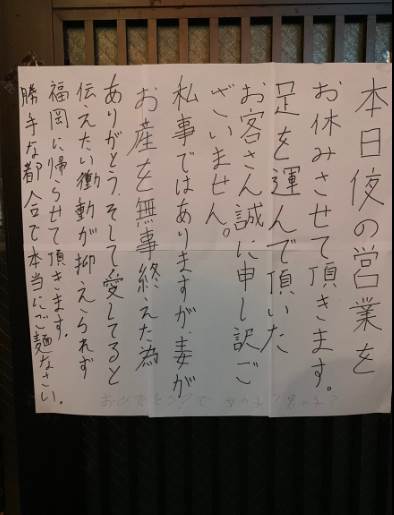 本日夜の営業を
お休みさせて頂きます。
足を運んで頂いた
お客さん誠に申し訳ご
ざいません。
私事ではありますが、妻が
お産を無事終えた為
ありがとう、そして愛してると
伝えたい衝動が抑えられず
福岡に帰らせて頂きます。
勝手な都合で本当にご麺なさい。